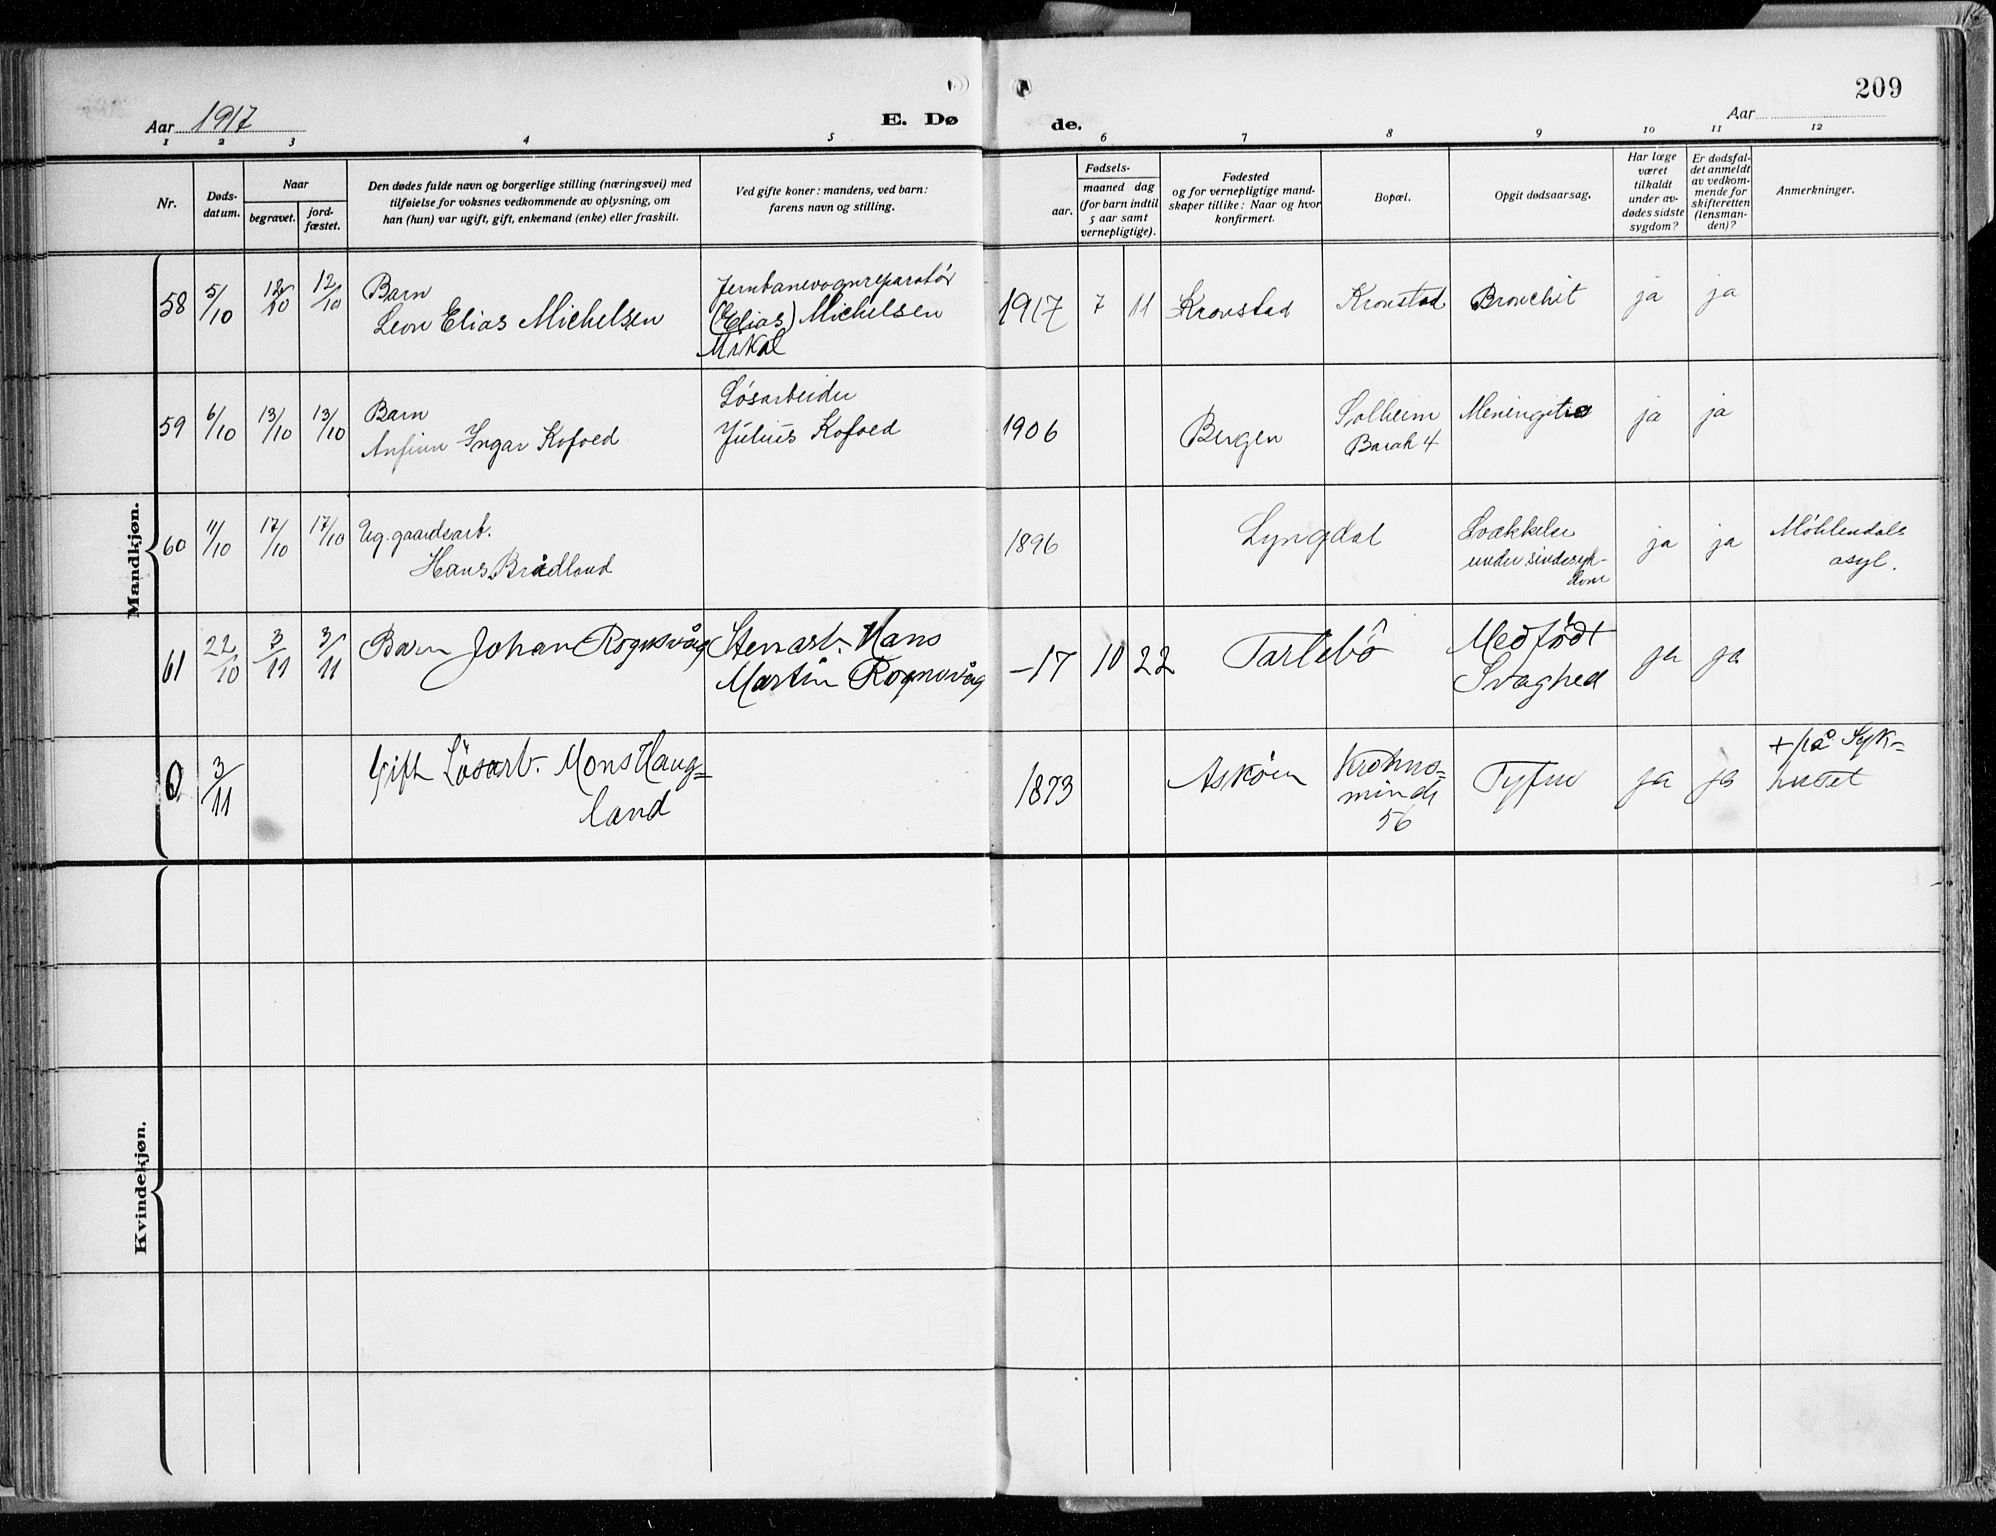 209
Aar 1917
E. Dø
de.
Aar
1 2 3 4 5 6 7 8 9 10 11 12
Nr.
Døds-
datum.
Naar
begravet.
jord-
fæstet.
Den dødes fulde navn og borgerlige stilling (næringsvei) med
tilføielse for voksnes vedkommende av oplysning, om
han (hun) var ugift, gift, enkemand (enke) eller fraskilt.
Ved gifte koner: mandens, ved barn:
farens navn og stilling.
Fødsels-
aar.
maaned dag
(for barn indtil
5 aar samt
vernepligtige).
Fødested
og for vernepligtige mand-
skaper tillike: Naar og hvor
konfirmert.
Bopæl.
Opgit dødsaarsag.
Har læge
været
tilkaldt
under av-
dødes sidste
sygdom?
Er dødsfal-
det anmeldt
av vedkom-
mende for
skifteretten
(lensman-
den)?
Anmerkninger.
Mandkjøn.
58 5/10 12/10 12/10
Barn
Leon Elias Michelsen
Jernbanevognreparatør
(Elias) Michelsen
Mikal
1917 7 11 Kronstad Kronstad Bronchit ja ja
59 6/10 13/10 13/10
Barn
Anfinn Yngar Kofoed
Løsarbeider
Julius Kofoed
1906 Bergen
Solheim
Barak 4
Meningitis ja ja
60 11/10 17/10 17/10
Ug. gaardsarb.
Hans Brådland
1896 Lyngdal
Svækkelse
under sindssyk-
dom
ja ja
Møhlendals
asyl.
61 22/10 3/11 3/11
Barn Johan Rognsvåg
Stenarb. Hans
Martin Rognsvåg
-17 10 22 Tartebø
Medfødt
Svaghed
ja ja
0 3/11
Gift Løsarb. Mons Haug=
land
1873 Askøen
Krohns=
minde
56
Tyfus ja ja
+ på Syk-
huset
Kvindekjøn.